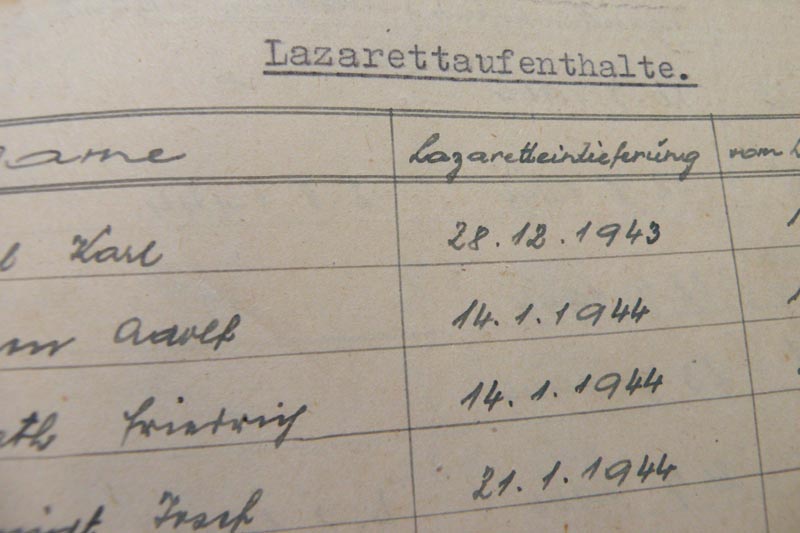 Lazarettaufenthalte.
Name Lazaretteinlieferung vom
Karl 28.12.1943
Adolf 14.1.1944
Friedrich 14.1.1944
Josef 21.1.1944